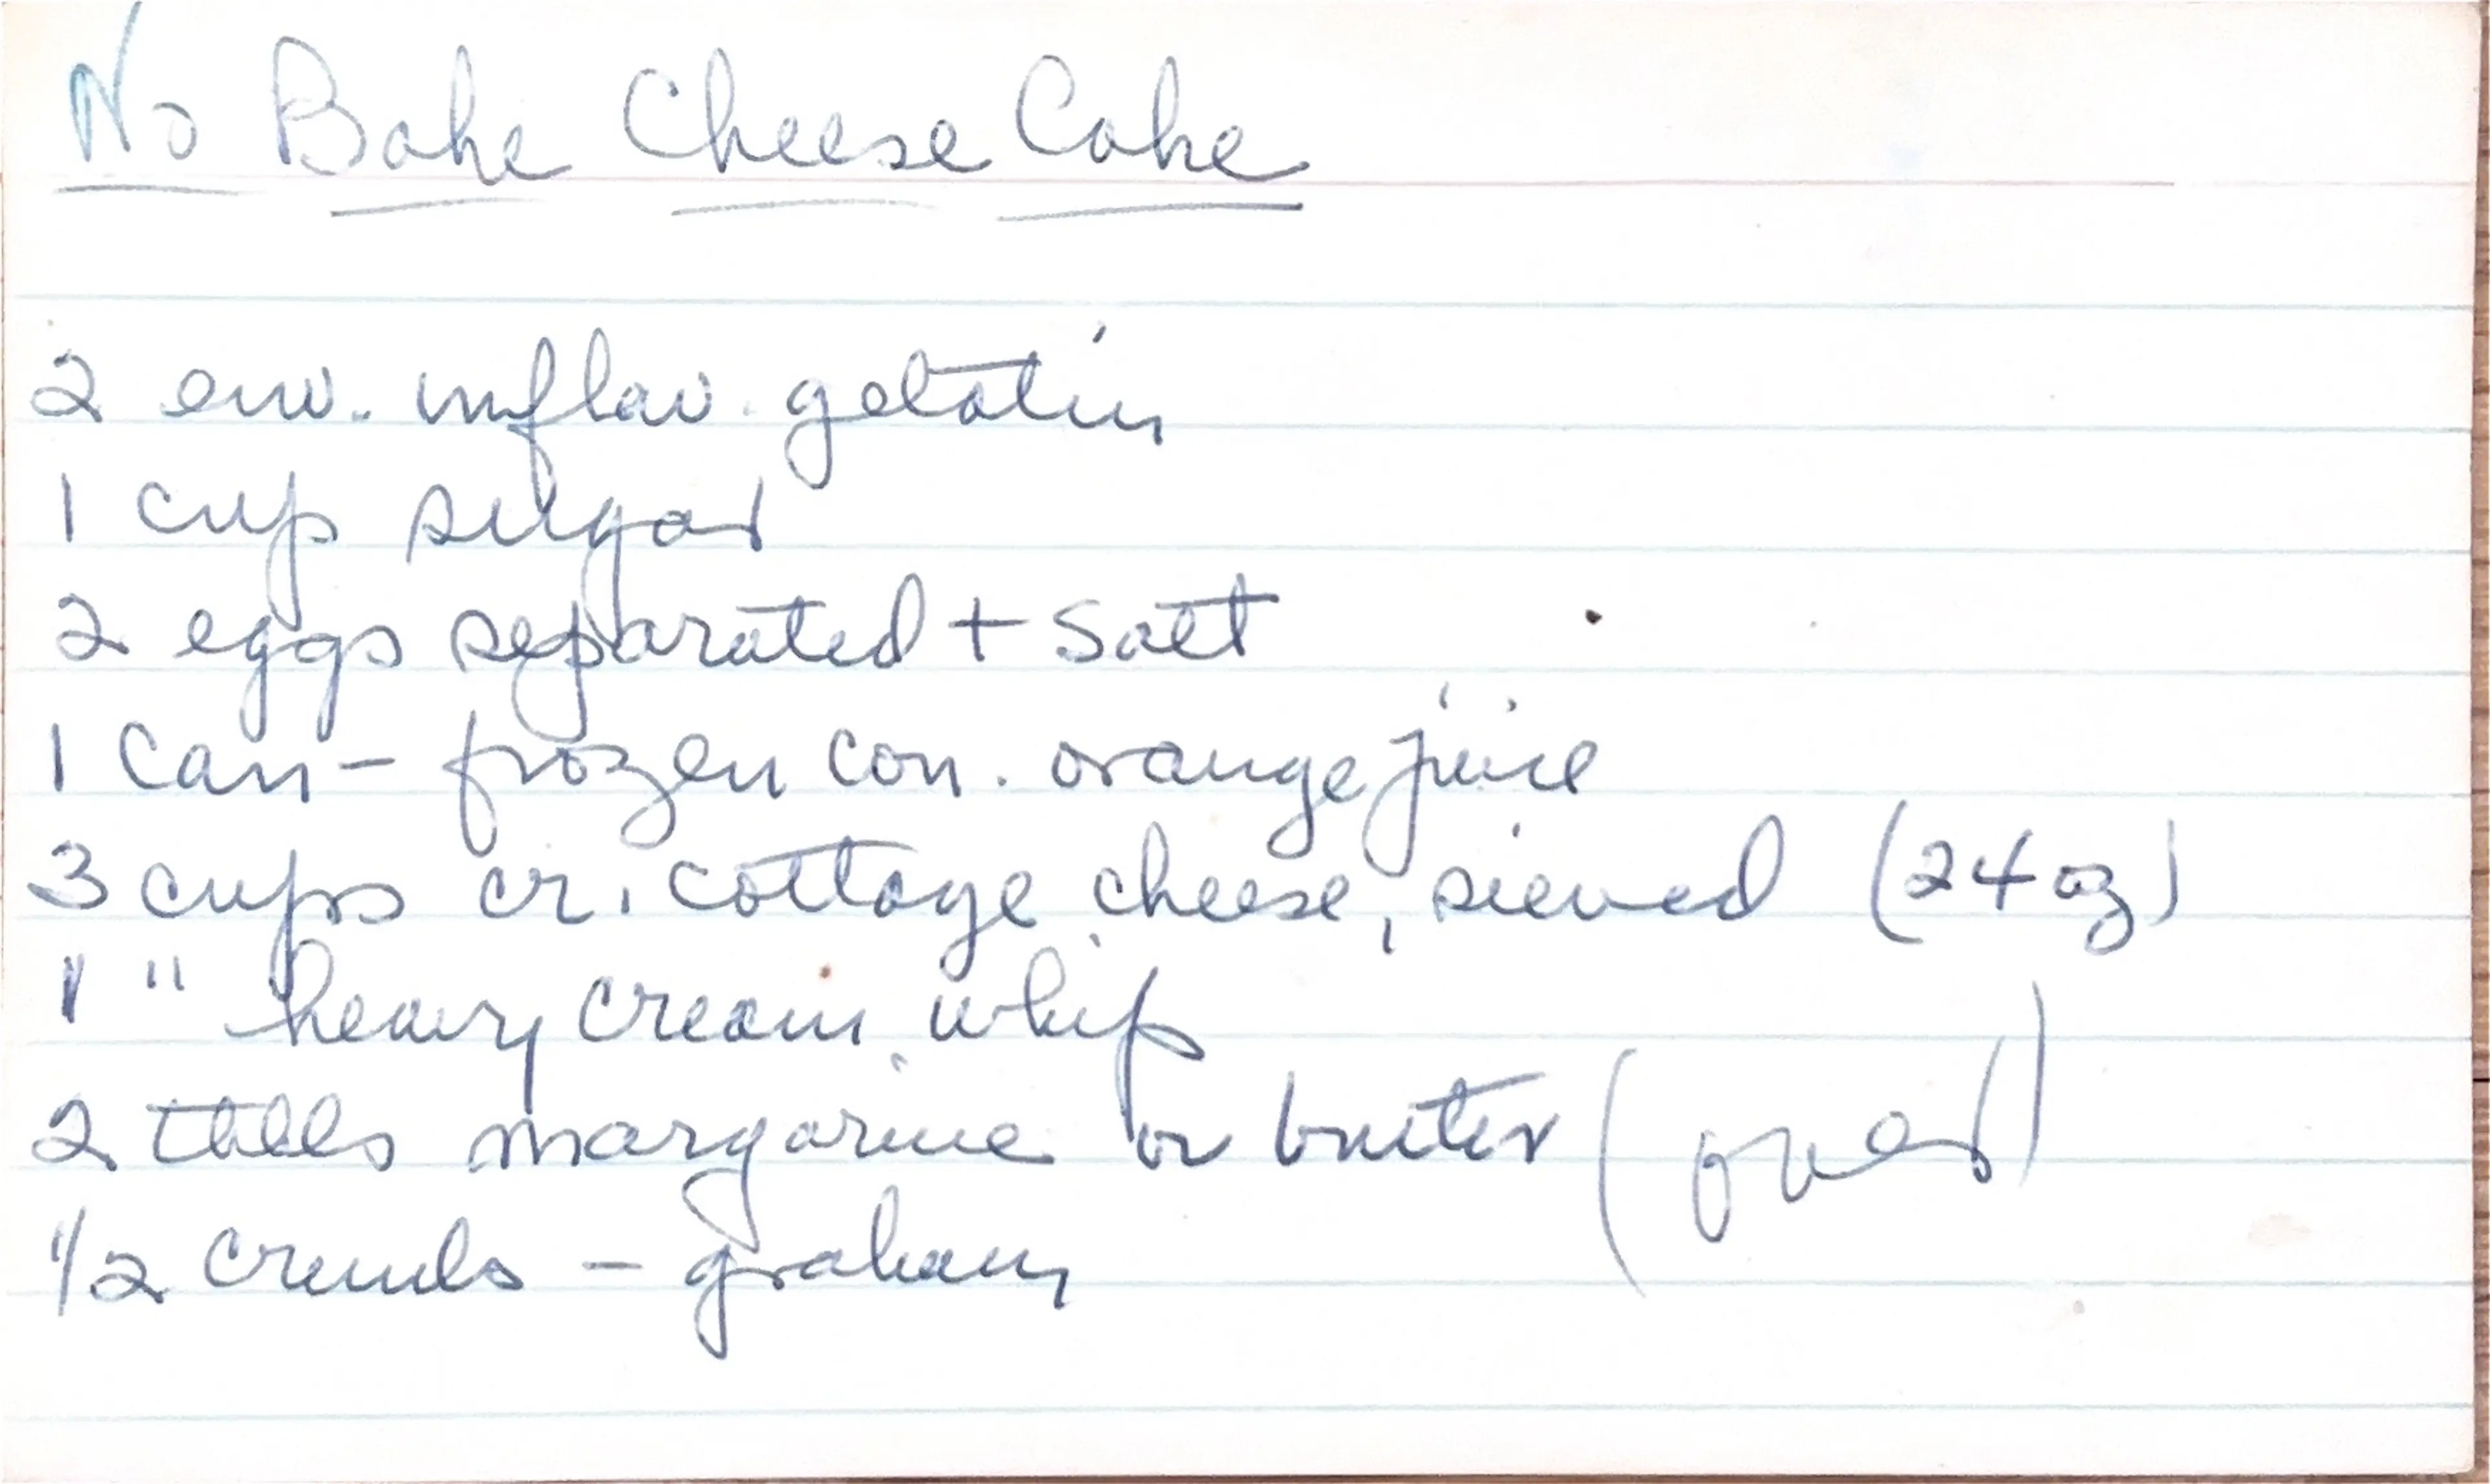 No Bake Cheese Cake
2 env. unflav. gelatin
1 cup sugar
2 eggs separated + salt
1 can - frozen con. orange juice
3 cups cr. cottage cheese, sieved (24 oz)
1 " heavy cream whip
2 tbls margarine or butter (over)
1/2 crumbs - graham